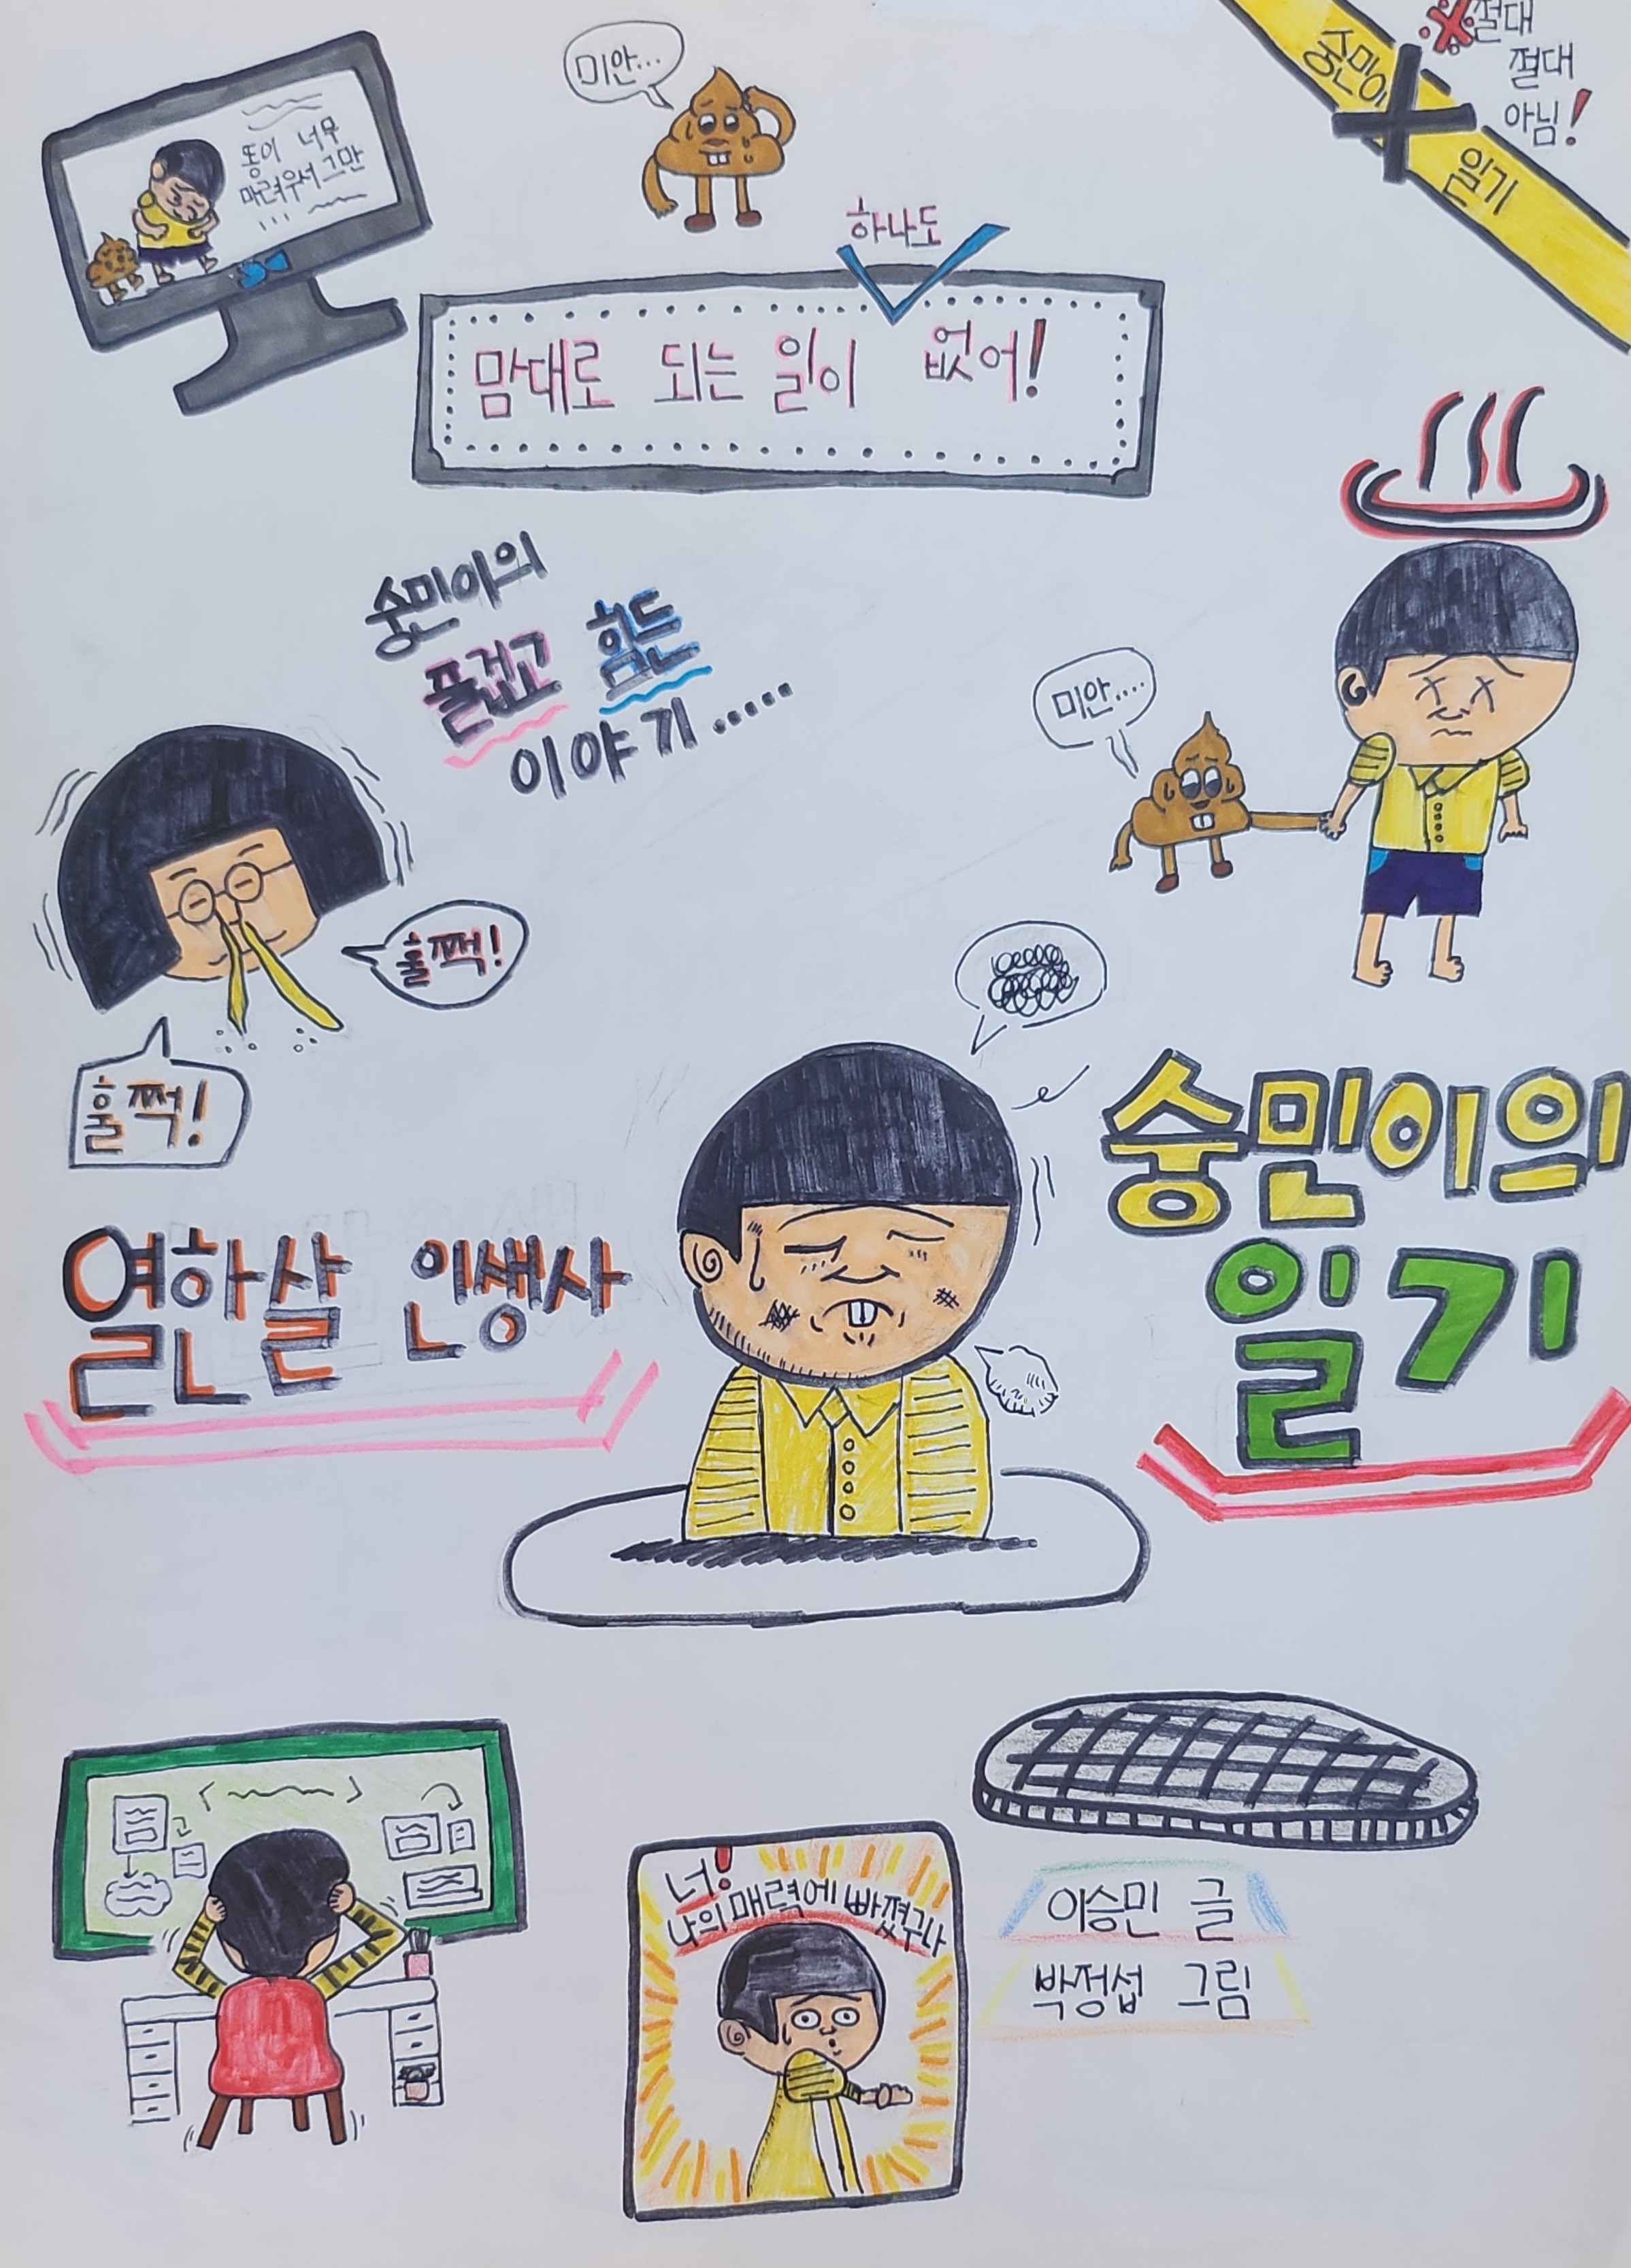 미안...
※절대
절대
아님!
숭민이
일기
똥이 너무
마려워서 그만
...
하나도
맘대로 되는 일이 없어!
숭민이의
즐겁고 힘든
이야기......
미안....
훌쩍!
훌쩍!
숭민이의
일기
열한살 인생사
너!
나의 매력에 빠졌구나
이승민 글
박정섭 그림